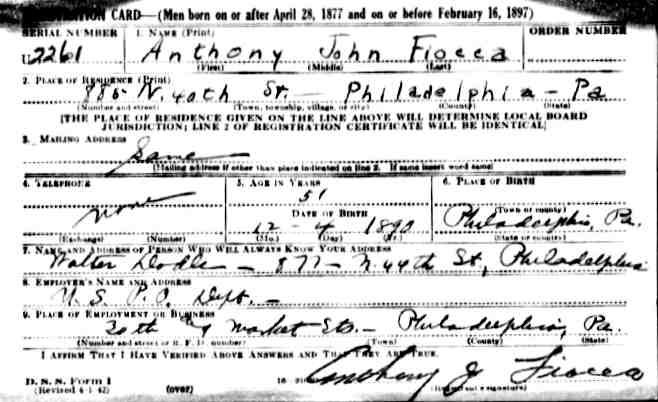 REGISTRATION CARD—(Men born on or after April 28, 1877 and on or before February 16, 1897)
SERIAL NUMBER 1. NAME (Print) ORDER NUMBER
U2261 Anthony John Fiocca
(First) (Middle) (Last)
2. PLACE OF RESIDENCE (Print)
885 N. 40th St. — Philadelphia — Pa
(Number and street) (Town, township, village, or city) (County) (State)
[THE PLACE OF RESIDENCE GIVEN ON THE LINE ABOVE WILL DETERMINE LOCAL BOARD
JURISDICTION; LINE 2 OF REGISTRATION CERTIFICATE WILL BE IDENTICAL]
3. MAILING ADDRESS
Same
[Mailing address if other than place indicated on line 2. If same insert word same]
4. TELEPHONE 5. AGE IN YEARS 6. PLACE OF BIRTH
51
none DATE OF BIRTH (Town or county)
12 - 4 1890 Philadelphia, Pa.
(Exchange) (Number) (Mo.) (Day) (Yr.) (State or country)
7. NAME AND ADDRESS OF PERSON WHO WILL ALWAYS KNOW YOUR ADDRESS
Walter — 877 — N. 44th St, Philadelphia
8. EMPLOYER'S NAME AND ADDRESS
U. S. P.O. Dept. —
9. PLACE OF EMPLOYMENT OR BUSINESS
30th & Market Sts. — Philadelphia, Pa.
(Number and street or R. F. D. number) (Town) (County) (State)
I AFFIRM THAT I HAVE VERIFIED ABOVE ANSWERS AND THAT THEY ARE TRUE.
D. S. S. Form 1 Anthony J Fiocca
(Revised 4-1-42) (over) (Registrant's signature)